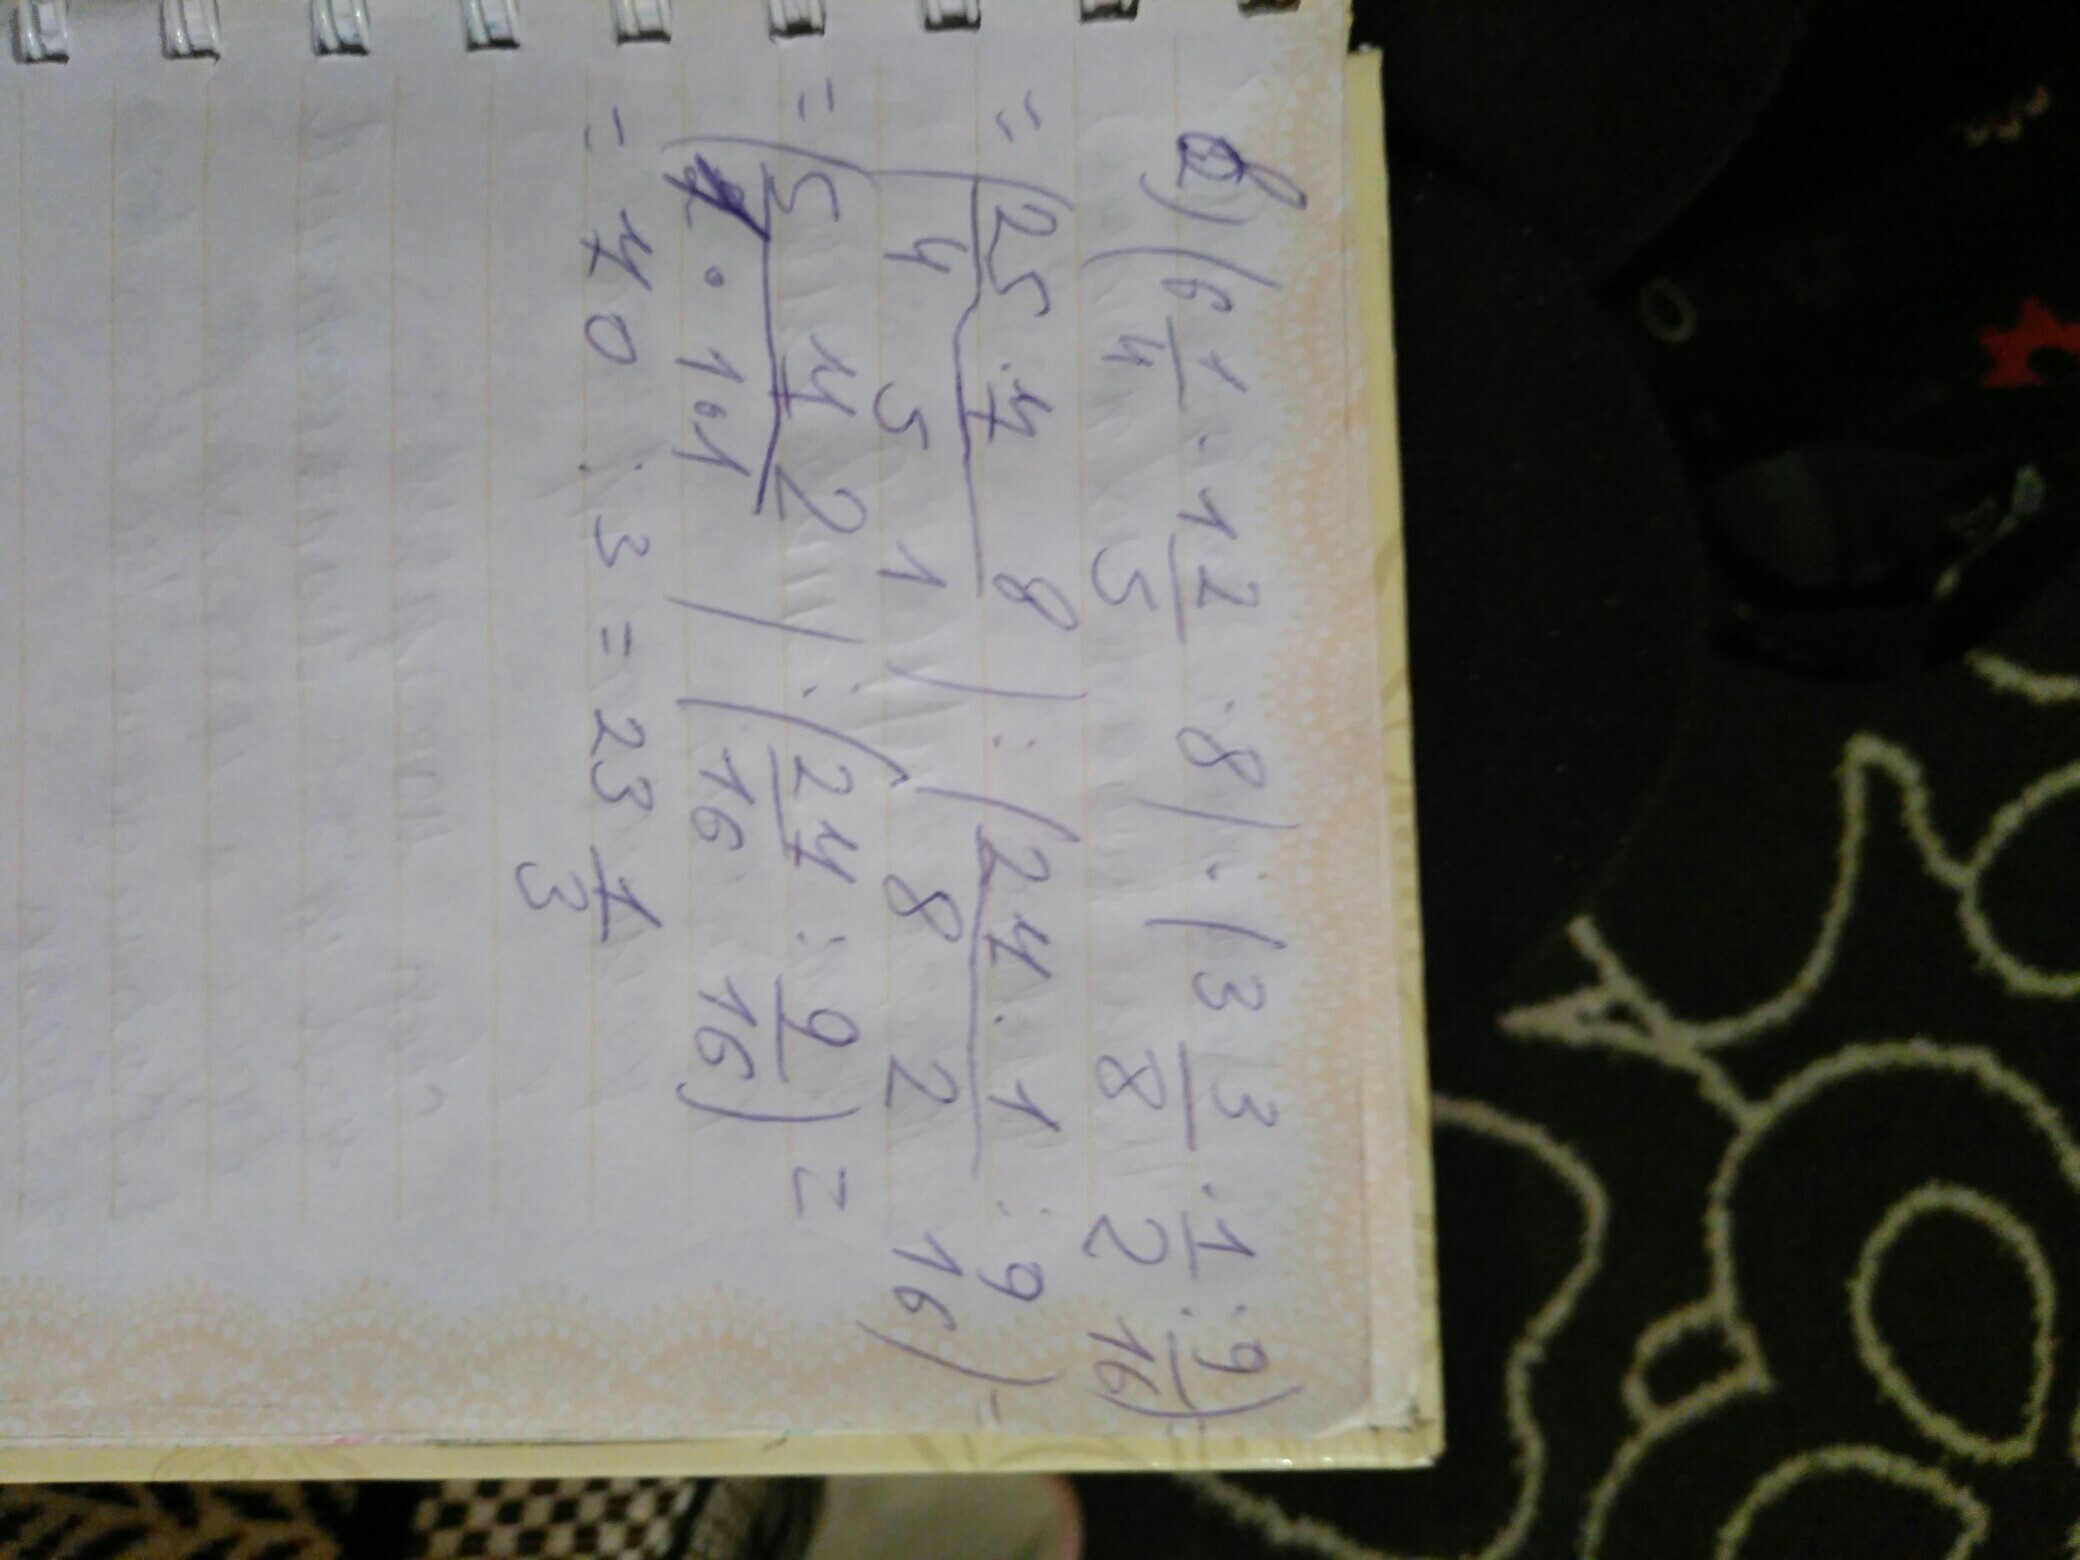 в) (6 1/4 · 1 2/5 · 8) : (3 3/8 · 1/2 : 9/16)
= (25 · 7 8 / 4 5 1) : (27 · 1 / 8 2 : 9/16) =
= (5 7 2 / 1 · 1 · 1) : (27/16 : 9/16) =
= 70 : 3 = 23 1/3